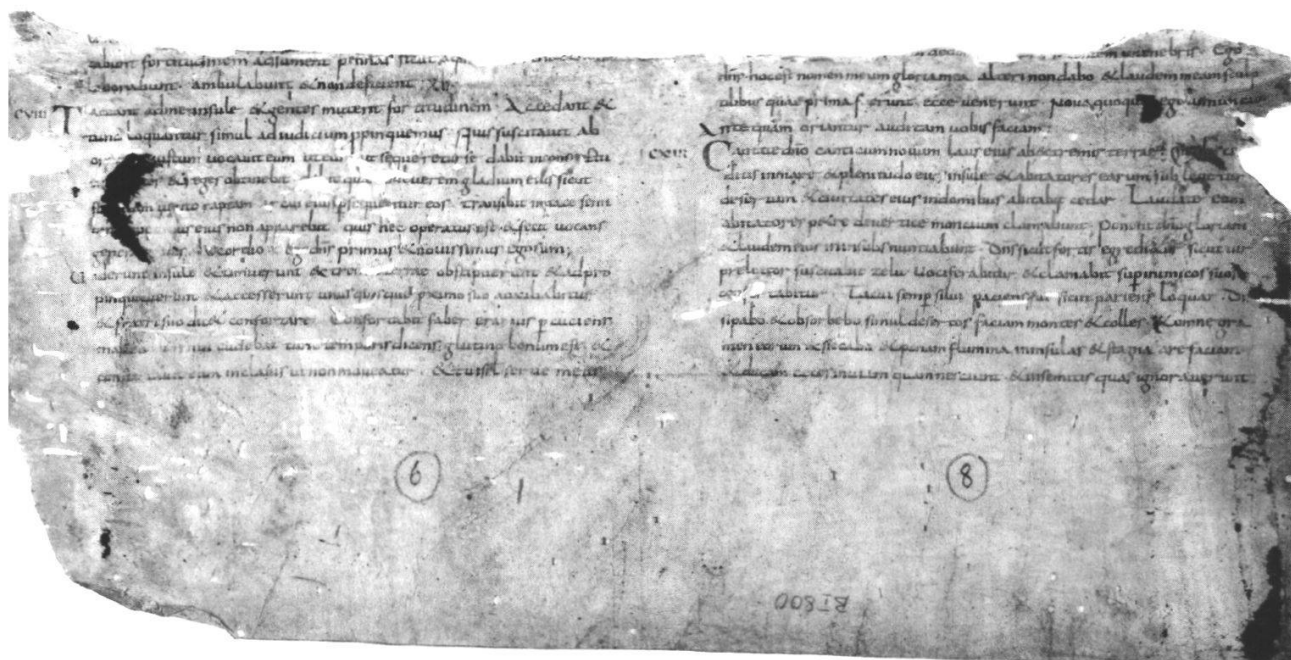 tabunt fortitudinem adsument pennas sicut aqui
laborabunt. ambulabunt & non deficient
CVIII Taceant ad me insule & gentes mutent fortitudinem Accedant &
tunc loquantur simul ad iudicium ppinquemus quis suscitavit ab
iustum vocavit eum ut sequeretur se dabit in conspectu
& reges obtinebit dabit quasi pulverem gladium eius sicut
vento raptam arcui eius psequetur eos. transibit in pace semi
eius non apparebit. quis hęc operatus est & fecit vocans
ab exordio ego dns primus & novissimus ego sum;
Viderunt insule & timuerunt & extrema terrae obstipuerunt & adpro
pinquaverunt & accesserunt unusquisque proximo suo auxiliabitur
& fratri suo dic& confortare Confortabit faber erarius pcuciens
malleo eum qui cudebat tunc temporis dicens glutino bonum est. &
eum in clavis ut non moveatur. & tu isrl serve meus
in tenebris. Ego
dns hoc est nomen meum gloriam mea alteri non dabo & laudem meam sculp
tilibus quae prima f erunt ecce venerunt Nova quoque ego
Antequam oriantur audita vobis faciam;
CXIII Cantate dno canticum novum laus eius ab extremis terrae
ditis in mare & plenitudo eius insule & abitatores earum sublevetur
desertum & civitates eius in domibus abitabit cedar Laudate
abitatores petre de vertice montium clamabunt; Ponent dno gloriam
& laudem eius in insulis nuntiabunt Dns sicut fortis egredietur sicut vir
preliator suscitabit zelu Vociferabitur & clamabit sup inimicos suos
confortabitur Tacui semp silui paciens fui sicut pariens loquar. Dis
sipabo & obsorbebo simul desertos faciam montes & colles & omne gra
men eorum & siccabo & ponam flumina in insulas & stagna arefaciam
& educam cecos in viam quam nesciunt & in semitis quas ignoraverunt
6
8
BI 800